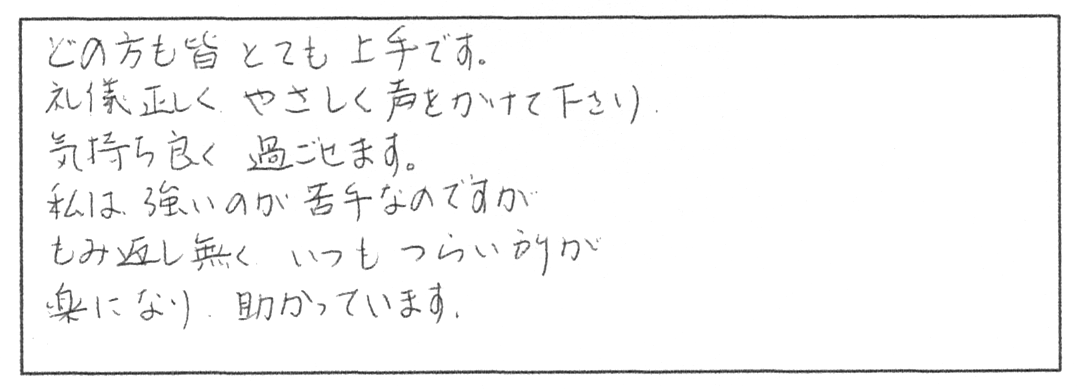 どの方も皆 とても 上手です。
礼儀正しく やさしく 声をかけて下さり.
気持ち良く 過ごせます。
私は 強いのが 苦手なのですが
もみ返し無く いつも つらい所が
楽になり. 助かっています.